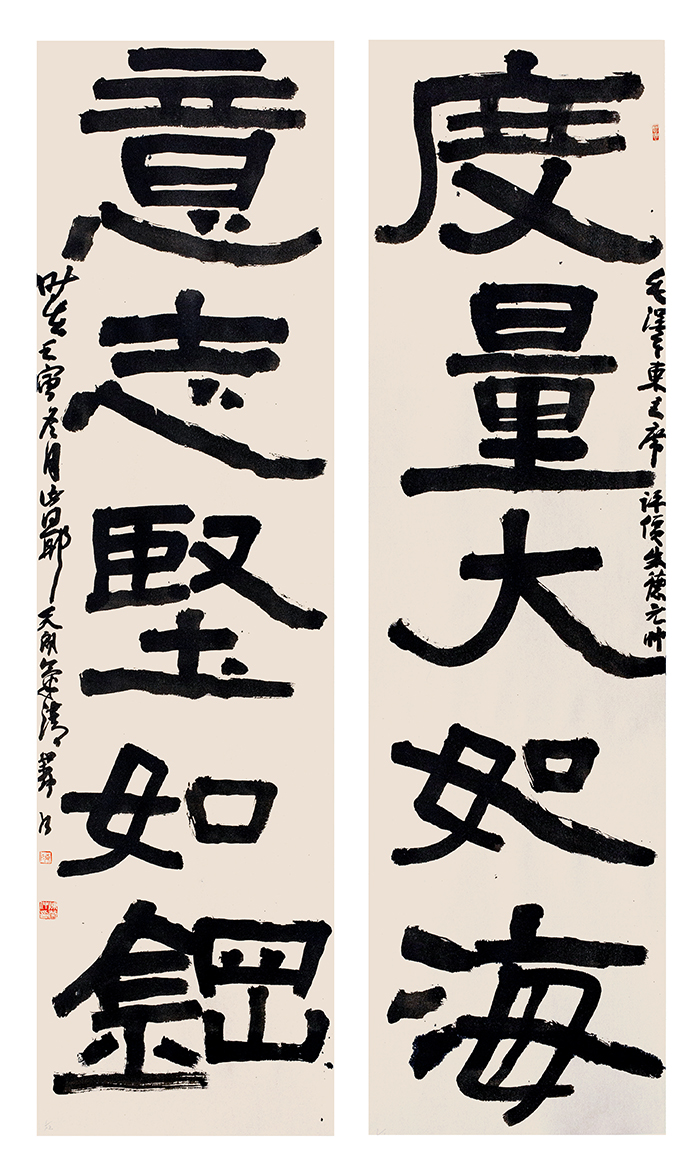 毛澤東主席 评價朱德元帅
度量大如海
意志堅如鋼
时在壬寅冬月 天朗氣清